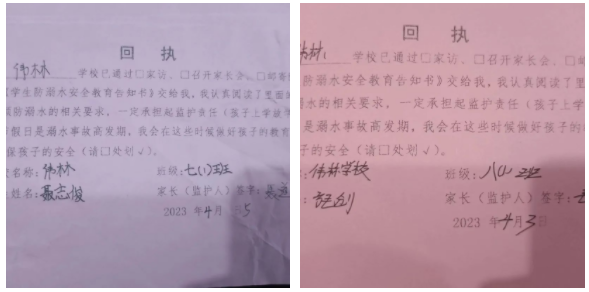 回 执
伟林 学校已通过□家访、□召开家长会、□邮寄
《学生防溺水安全教育告知书》交给我,我认真阅读了里面
防溺水的相关要求,一定承担起监护责任(孩子上学放学
假日是溺水事故高发期,我会在这些时候做好孩子的教育
保孩子的安全(请□处划√)。
校名称:伟林 班级:七(1)班
姓名:聂志俊 家长(监护人)签字:
2023 年 4 月 5
回 执
伟林 学校已通过□家访、□召开家长会、□
防溺水安全教育告知书》交给我,我认真阅读了里
溺水的相关要求,一定承担起监护责任(孩子上学
是溺水事故高发期,我会在这些时候做好孩子的教
孩子的安全(请□处划√)。
:伟林学校 班级:八(1)班
: 家长(监护人)签字:
2023 年 4 月 3 日